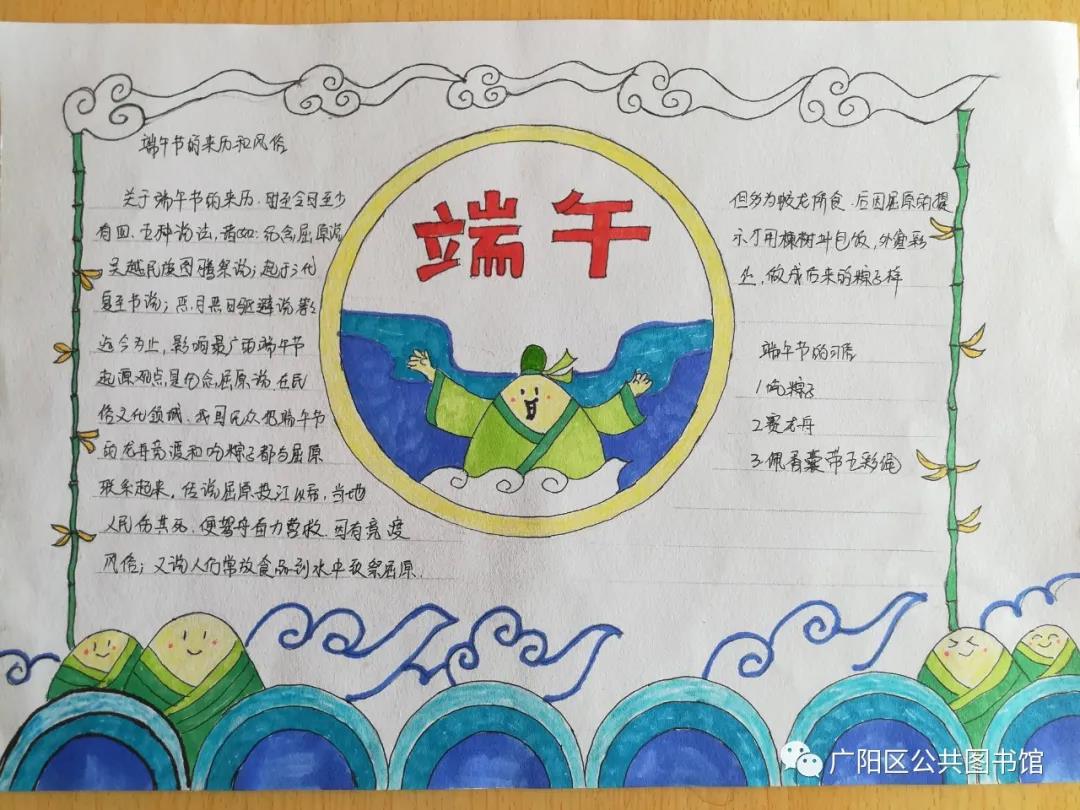 端午节的来历和风俗
关于端午节的来历,时至今日至少
有四、五种说法,诸如:纪念屈原说
吴越民族图腾祭说;起于三代
夏至节说;恶月恶日驱避说等
迄今为止,影响最广的端午节
起源观点,是纪念屈原说 在民
俗文化领域,我国民众把端午节
的龙舟竞渡和吃粽子都与屈原
联系起来,传说屈原投江以后,当地
人民伤其死,便驾舟奋力营救,因有竞渡
风俗;又说人们常放食品到水中致祭屈原,
端午
但多为蛟龙所食,后因屈原的提
示才用楝树叶包饭,外缠彩
丝,做成后来的粽子样
端午节的习俗
1.吃粽子
2.赛龙舟
3.佩香囊带五彩绳
广阳区公共图书馆